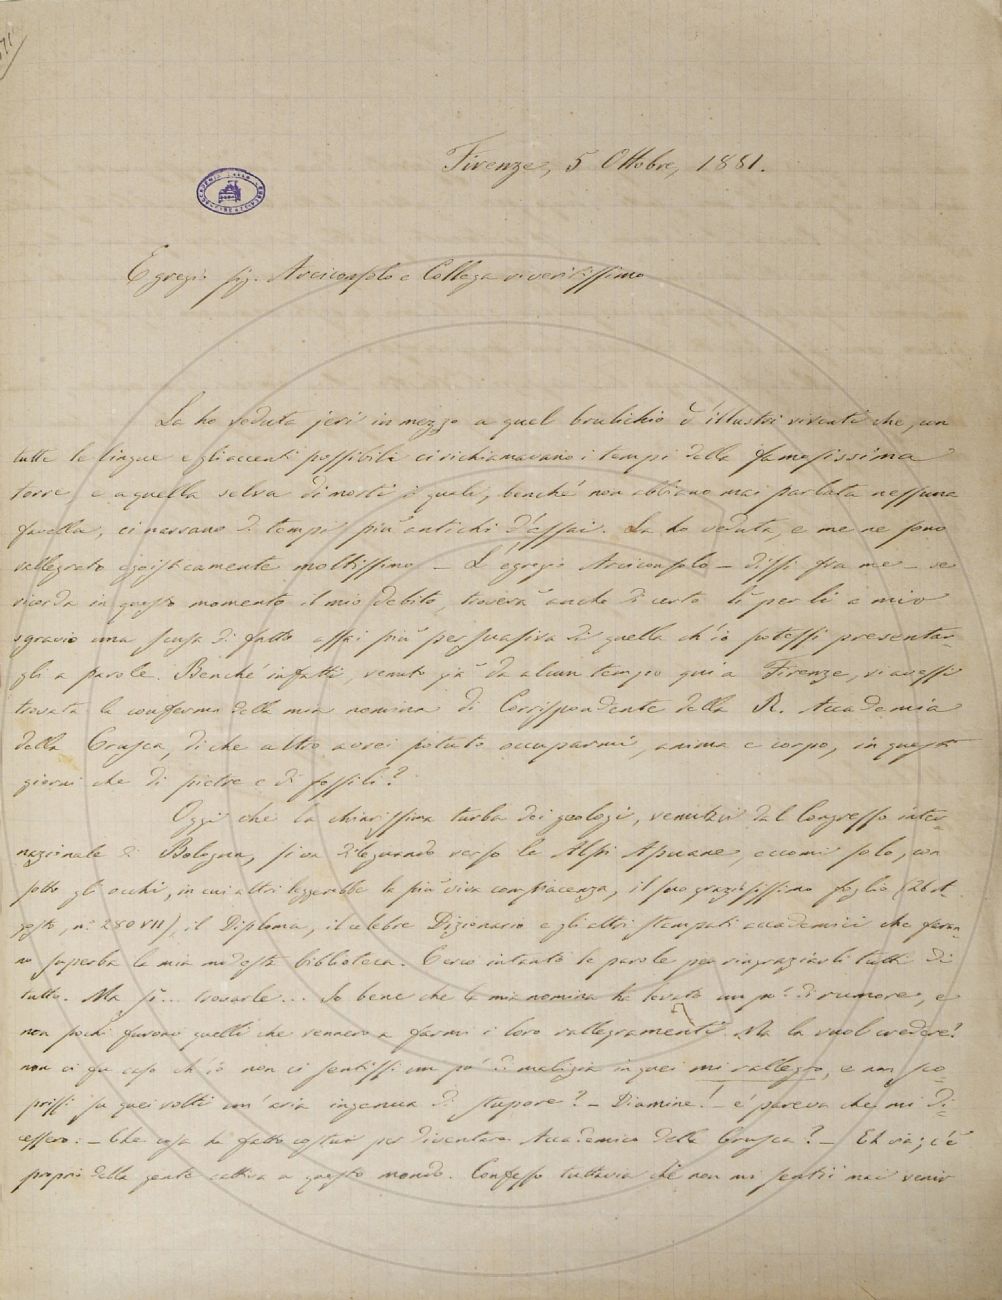 Firenze, 5 Ottobre, 1881.
Egregio sig. Arciconsolo e Collega riveritissimo
La ho veduta jeri in mezzo a quel brulichio d'illustri viventi che, con
tutte le lingue e gli accenti possibili ci richiamavano i tempi della famosissima
torre, e a quella selva di morti i quali, benché non abbiano mai parlata nessuna
favella, ci narrano di tempi più antichi d'assai. La ho veduta, e me ne sono
rallegrato egoisticamente moltissimo — L'egregio Arciconsolo — dissi fra me — se
ricorda in questo momento il mio debito, troverà anche di certo lì per lì a mio
sgravio una scusa di fatto assai più persuasiva di quella ch'io potessi presentar-
gli a parole. Benché infatti, venuto già da alcun tempo qui a Firenze, vi avessi
trovata la conferma della mia nomina di Corrispondente della R. Accademia
della Crusca, di che altro avrei potuto occuparmi, anima e corpo, in questi
giorni che di pietre e di fossili?
Oggi che la chiarissima turba dei geologi, venutivi dal Congresso inter-
nazionale di Bologna, si va dileguando verso le Alpi Apuane eccomi solo, con
sotto gli occhi, in cui altri leggerebbe la più viva compiacenza, il suo graziosissimo foglio (26 A-
gosto, n.° 280 VII), il Diploma, il celebre Dizionario e gli altri stampati accademici che faran-
no superba la mia modesta biblioteca. Cerco intanto le parole per ringraziarli tutti di
tutto. Ma sì... trovarle... So bene che la mia nomina ha levato un po' di rumore, e
non pochi furono quelli che vennero a farmi i loro rallegramenti. Ma la vuol credere?
non ci fu caso ch'io non ci sentissi un po' di malizia in quei mi rallegro, e non sco-
prissi su quei volti un'aria ingenua di stupore? — Diamine! — e' pareva che mi di-
cessero: — Che cosa ha fatto costui per diventare Accademico della Crusca? — Eh via; c'è
proprio della gente cattiva a questo mondo. Confesso tuttavia che non mi sentii mai venir